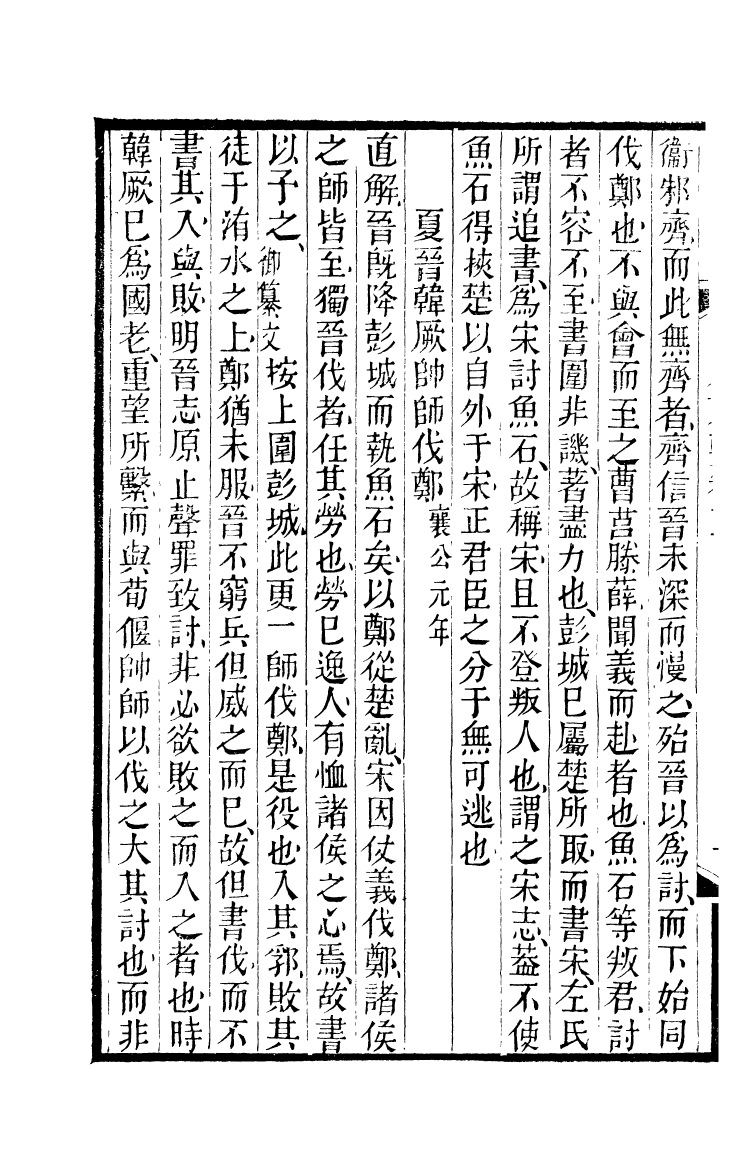 衞邾齊而此無齊者齊信晉未深而慢之殆晉以爲討而下始同
伐鄭也不與會而至之曹莒滕薛聞義而赴者也魚石等叛君討
者不容不至書圍非譏著盡力也彭城巳屬楚所取而書宋左氏
所謂追書爲宋討魚石故稱宋且不登叛人也謂之宋志葢不使
魚石得挾楚以自外于宋正君臣之分于無可逃也
夏晉韓厥帥師伐鄭襄公元年
直解晉旣降彭城而執魚石矣以鄭從楚亂宋因仗義伐鄭諸侯
之師皆至獨晉伐者任其勞也勞巳逸人有恤諸侯之心焉故書
以予之御纂文按上圍彭城此更一師伐鄭是役也入其郛敗其
徒于洧水之上鄭猶未服晉不窮兵但威之而巳故但書伐而不
書其入與敗明晉志原止聲罪致討非必欲敗之而入之者也時
韓厥巳爲國老重望所繫而與荀偃帥師以伐之大其討也而非